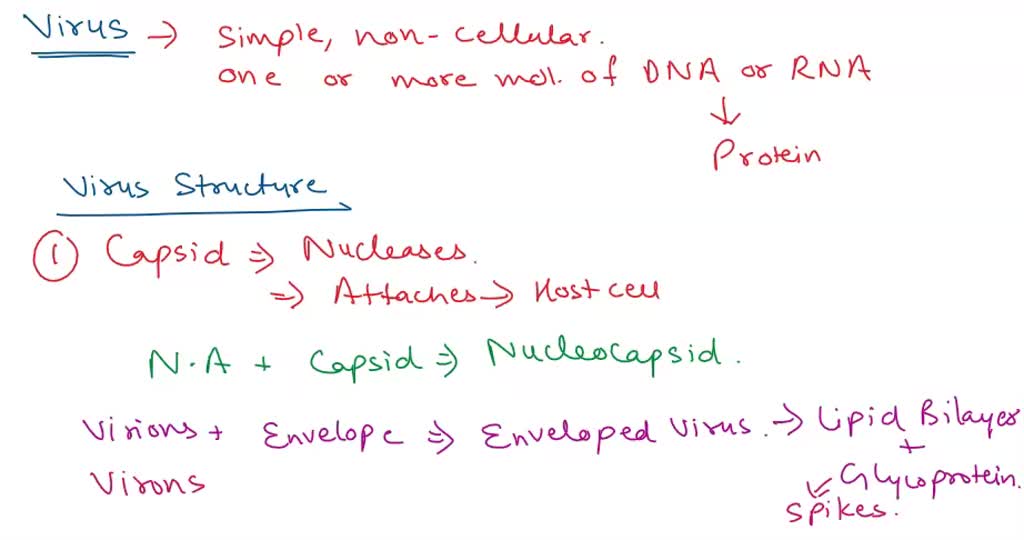 Virus → Simple, non-cellular.
one or more mol. of DNA or RNA
↓
Protein
Virus Structure
① Capsid ⇒ Nucleases.
⇒ Attaches → Host cell
N.A + Capsid ⇒ Nucleocapsid.
Virions + Envelope ⇒ Enveloped Virus. → Lipid Bilayer
+
Virons ↙ Glycoprotein.
Spikes.